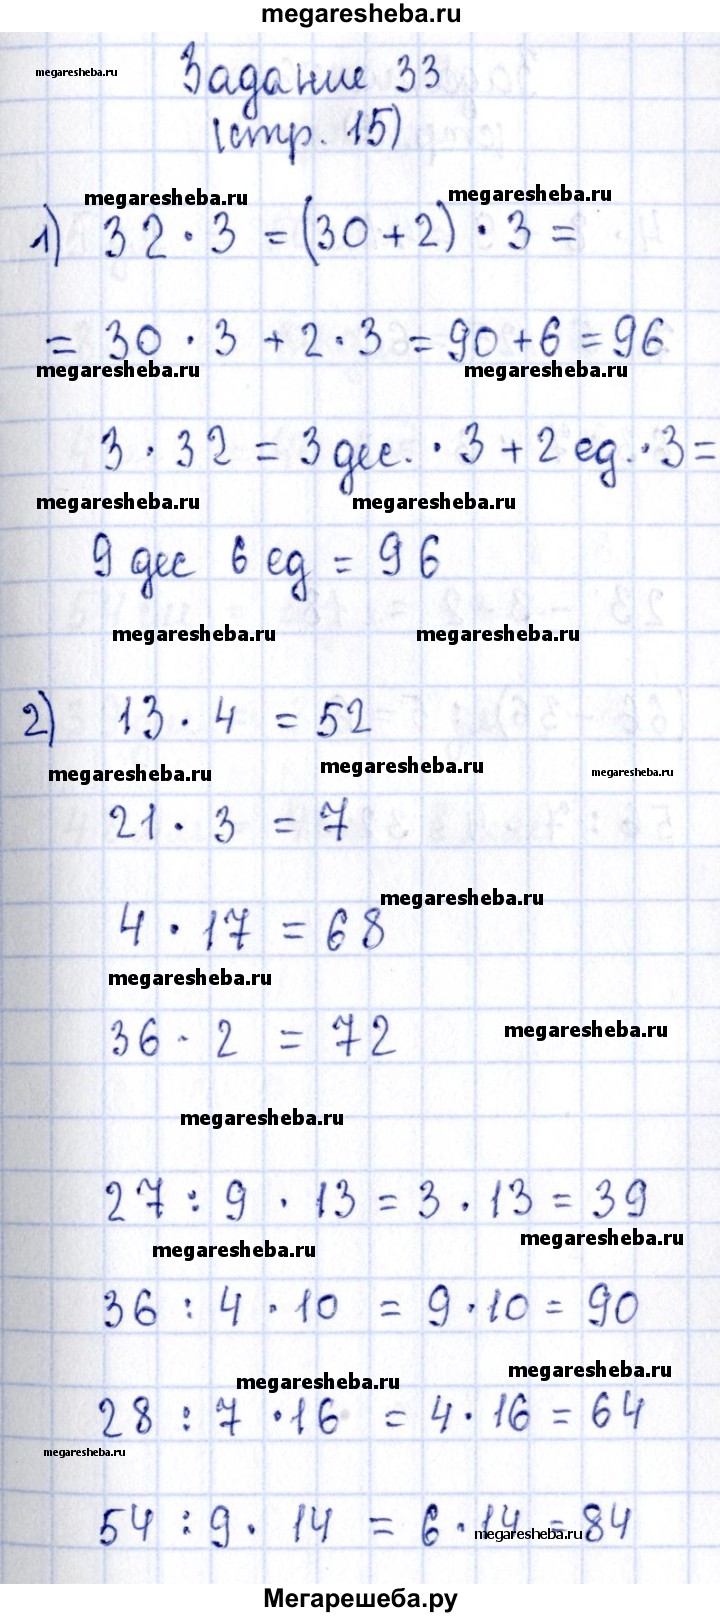 megaresheba.ru
megaresheba.ru
Задание 33
(стр. 15)
megaresheba.ru megaresheba.ru
1) 32 · 3 = (30 + 2) · 3 =
= 30 · 3 + 2 · 3 = 90 + 6 = 96
megaresheba.ru megaresheba.ru
3 · 32 = 3 дес. · 3 + 2 ед. · 3 =
megaresheba.ru megaresheba.ru
9 дес 6 ед = 96
megaresheba.ru megaresheba.ru
2) 13 · 4 = 52
megaresheba.ru megaresheba.ru megaresheba.ru
21 · 3 = 7
megaresheba.ru
4 · 17 = 68
megaresheba.ru
36 · 2 = 72
megaresheba.ru
megaresheba.ru
27 : 9 · 13 = 3 · 13 = 39
megaresheba.ru megaresheba.ru
36 : 4 · 10 = 9 · 10 = 90
megaresheba.ru megaresheba.ru
28 : 7 · 16 = 4 · 16 = 64
megaresheba.ru
54 : 9 · 14 = 6 · 14 = 84
megaresheba.ru
Мегарешеба.ру